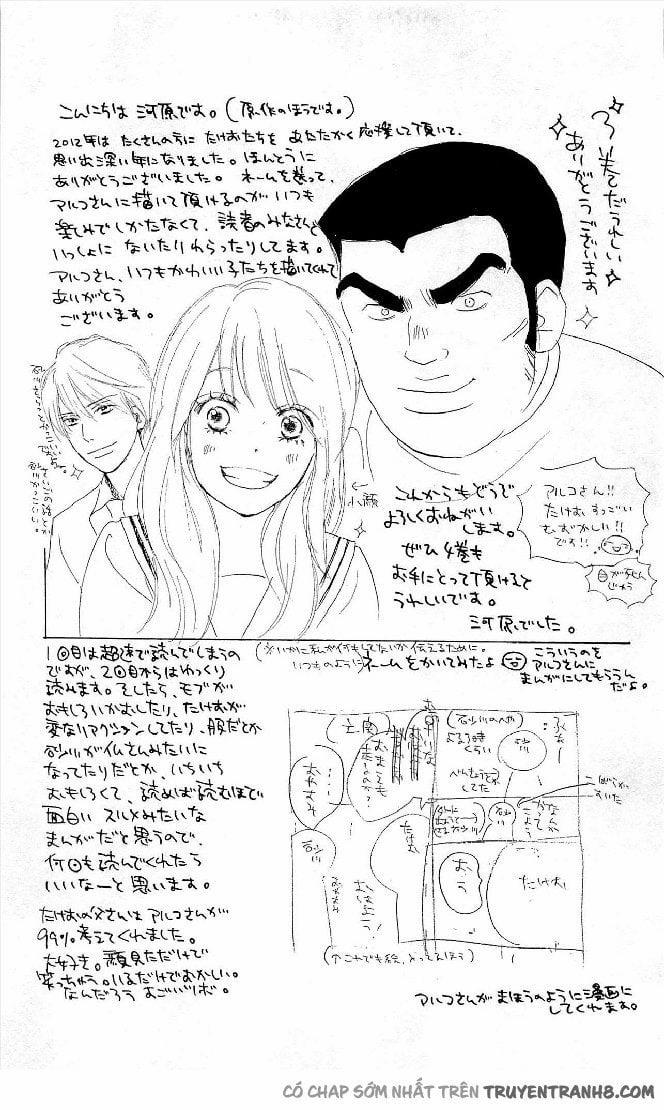 こんにちは 河原です。(原作のほうです。)
2012年は たくさんの方に たけおたちを あたたかく応援して頂いて、
思い出深い年になりました。ほんとうに
ありがとうございました。 ネームを
アルコさんに描いて頂けるのが いつも
楽しみでしかたなくて、読者のみなさんと
いっしょに ないたりわらったりしてます。
アルコさん、いつもかわいい子たちを描いてくれて
ありがとう
ございます。
ありがとうございます
←小顔
アルコさん!!
たけお すっごい
むずかしい!!
です!!
これからもどうぞ
よろしくおねがい
します。
ぜひ 4巻も
お手にとって頂けると
うれしいです。
河原でした。
1回目は超速で読んでしまうの
ですが、2回目からはゆっくり
読みます。そしたら、モブが
おもしろいかおしたり、たけおが
変なリアクションしてたり、服だとか
砂川がイムさんみたいに
なってたりだとか、いちいち
おもしろくて、読めば読むほど
面白い スルメみたいな
まんがだと思うので、
何回も読んでくれたら
いいなーと思います。
たけおの父さんは アルコさんが
99%考えてくれました。
大好き。顔見ただけで
笑っちゃう。いるだけでおかしい。
なんだろう
いつものように ネームをかいてみたよ
こういうのを
アルコさんに
まんがにしてもらうん
だよ。
砂川のへや
よる9時
くらい
砂川
べんきょう
してた
たけお
おう
たけお
おはよう!
おやすみ
砂川
アルコさんが まほうのように漫画に
してくれます。
CÓ CHAP SỚM NHẤT TRÊN TRUYENTRANH8.COM